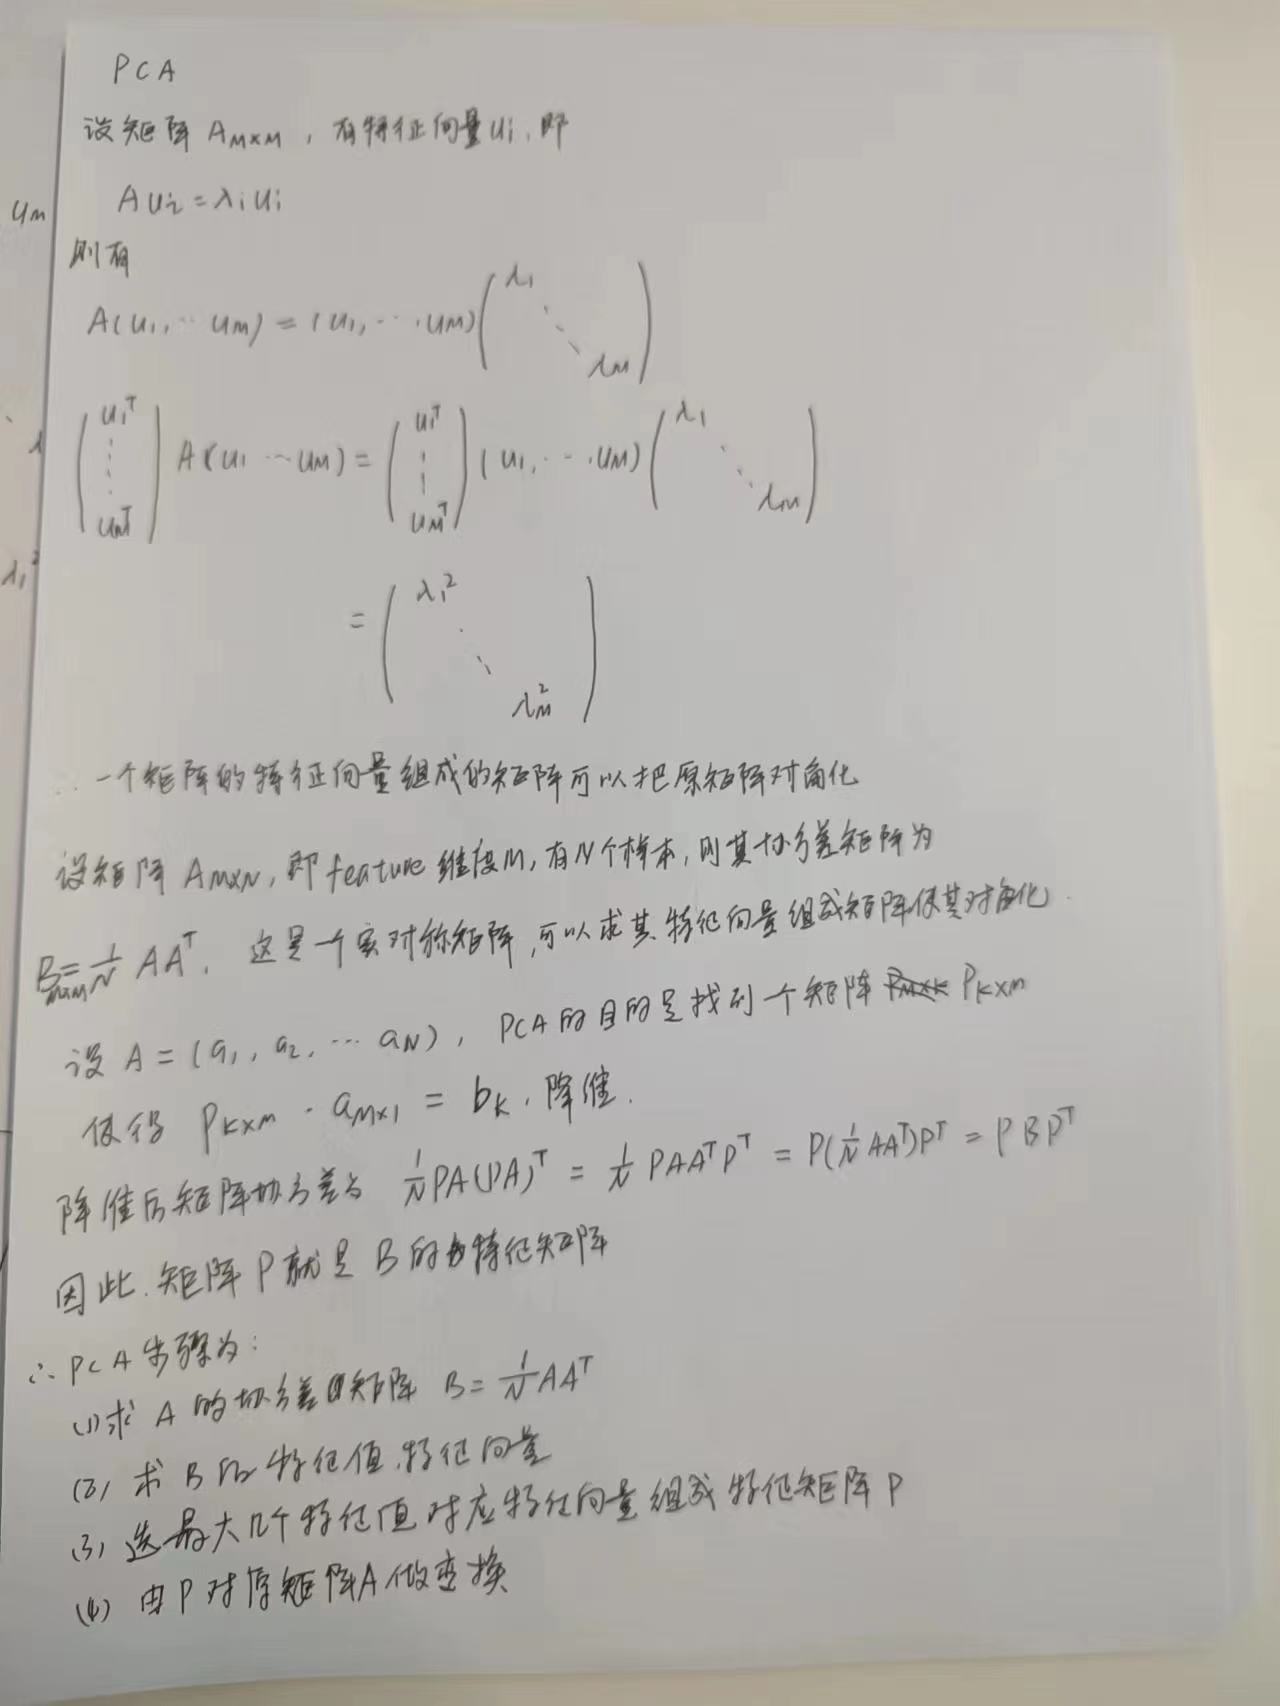 PCA
设矩阵 A_{M×M}, 有特征向量 u_i, 即
A u_i = λ_i u_i
则有
A(u_1, ... u_M) = (u_1, ... u_M) ( λ_1 ⋱ λ_M )
( u_1^T ⋮ u_M^T ) A (u_1 ... u_M) = ( u_1^T ⋮ u_M^T ) (u_1, ... u_M) ( λ_1 ⋱ λ_M )
= ( λ_1^2 ⋱ λ_M^2 )
∴ 一个矩阵的特征向量组成的矩阵可以把原矩阵对角化
设矩阵 A_{M×N}, 即 feature 维度 M, 有 N 个样本, 则其协方差矩阵为
B_{M×M} = 1/N AA^T, 这是一个实对称矩阵, 可以求其特征向量组成矩阵使其对角化.
设 A = (a_1, a_2, ... a_N), PCA 的目的是找到一个矩阵 P_{M×K} P_{K×M}
使得 P_{K×M} · a_{M×1} = b_K, 降维.
降维后矩阵协方差为 1/N PA(PA)^T = 1/N PAA^TP^T = P(1/N AA^T)P^T = PBP^T
因此, 矩阵 P 就是 B 的特征矩阵
∴ PCA 步骤为:
(1) 求 A 的协方差矩阵 B = 1/N AA^T
(2) 求 B 的特征值, 特征向量
(3) 选最大几个特征值对应特征向量组成特征矩阵 P
(4) 由 P 对原矩阵 A 做变换
u_M
λ
λ_1^2